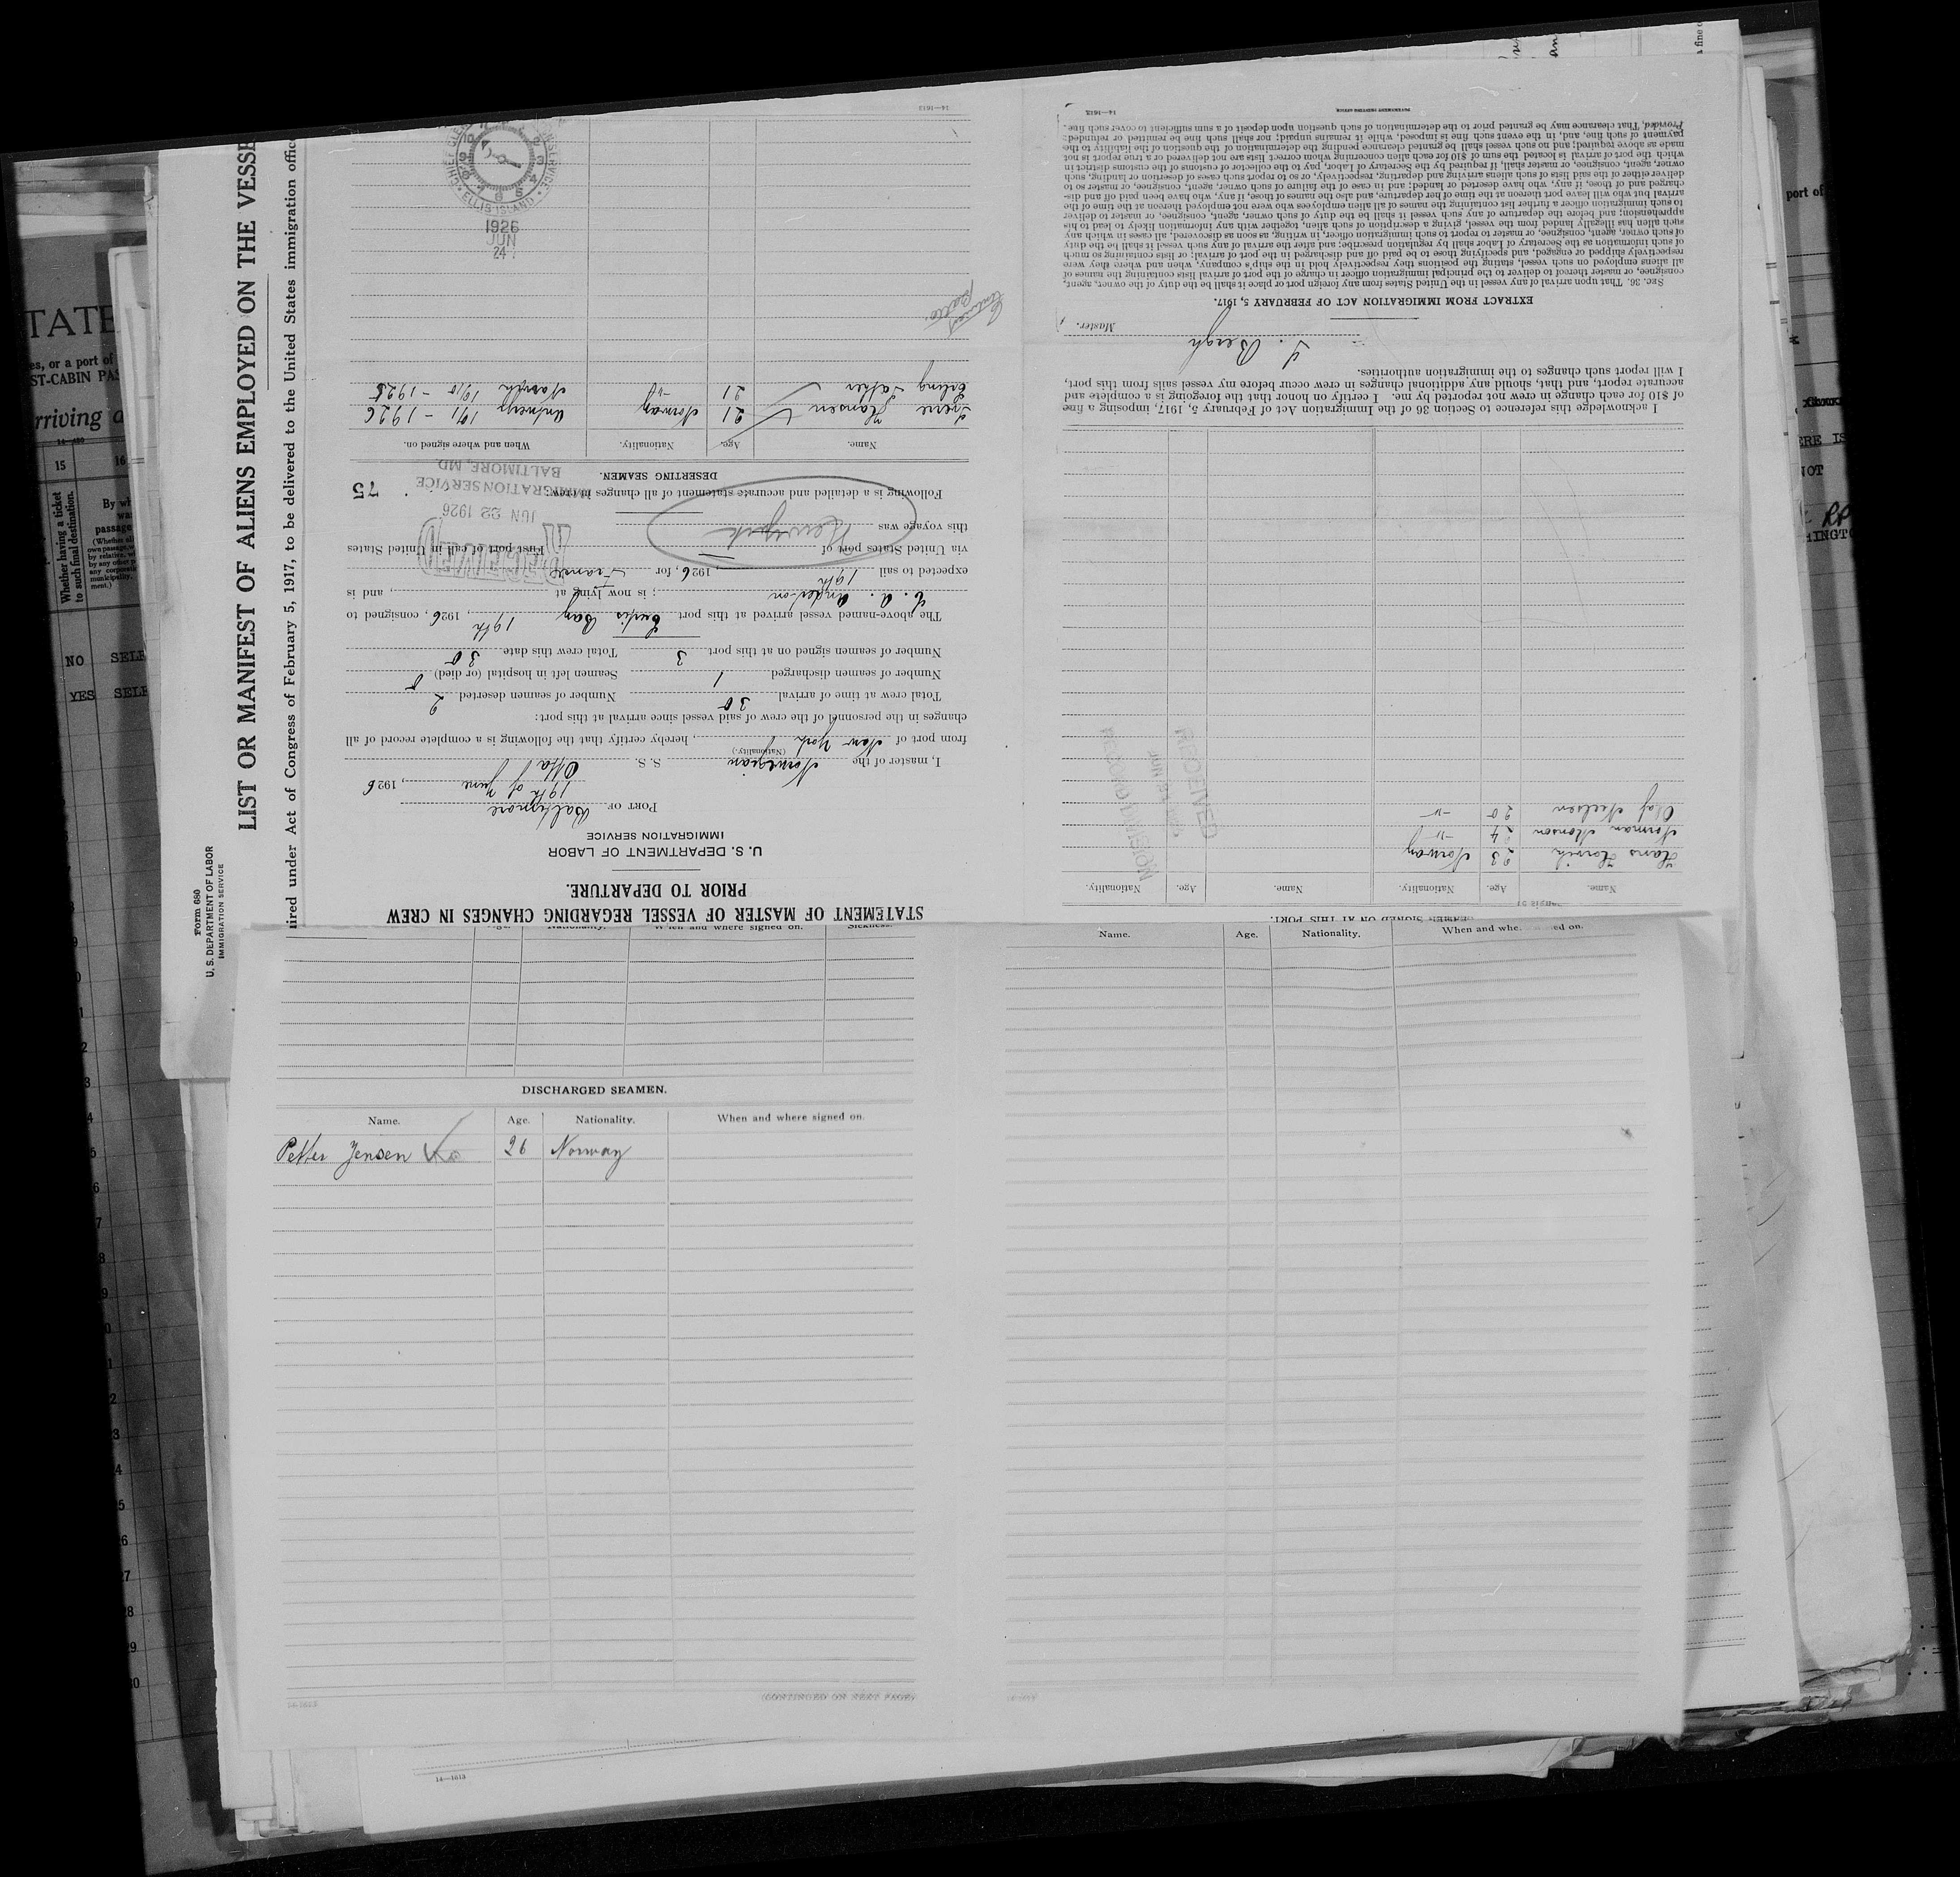 STATEMENT OF MASTER OF VESSEL REGARDING CHANGES IN CREW
PRIOR TO DEPARTURE.
U. S. DEPARTMENT OF LABOR
IMMIGRATION SERVICE
PORT OF Baltimore
19th of June, 1926
I, master of the Norwegian S. S. Offa
(Nationality.)
from port of New York, hereby certify that the following is a complete record of all
changes in the personnel of the crew of said vessel since arrival at this port:
Total crew at time of arrival 30 Number of seamen deserted 2
Number of seamen discharged 1 Seamen left in hospital (or died) 0
Number of seamen signed on at this port 3 Total crew this date 30
The above-named vessel arrived at this port Curtis Bay 19th, 1926, consigned to
; is now lying at , and is
expected to sail 19th, 1926, for France
via United States port of First port of call in United States
this voyage was New York
Following is a detailed and accurate statement of all changes in crew: 75
RECEIVED
JUN 22 1926
IMMIGRATION SERVICE
BALTIMORE, MD.
DESERTING SEAMEN.
Name. Age. Nationality. When and where signed on.
Sverre Hansen 21 Norway Antwerp 19/1 - 1926
Erling 21 -"- Narvik 10/10 - 1925
24
JUN
1926
ELLIS ISLAND
14—1613
SEAMEN SIGNED ON AT THIS PORT
Name. Age. Nationality. Name. Age. Nationality.
Hans 23 Norway
Norman Monson 24 -"-
Olaf Nielsen 20 -"-
RECEIVED
RECORD DIVISION
I acknowledge this reference to Section 36 of the Immigration Act of February 5, 1917, imposing a fine
of $10 for each change in crew not reported by me. I certify on honor that the foregoing is a complete and
accurate report, and that, should any additional changes in crew occur before my vessel sails from this port,
I will report such changes to the immigration authorities.
Bergh
Master.
EXTRACT FROM IMMIGRATION ACT OF FEBRUARY 5, 1917.
Sec. 36. That upon arrival of any vessel in the United States from any foreign port or place it shall be the duty of the owner, agent,
consignee, or master thereof to deliver to the principal immigration officer in charge of the port of arrival lists containing the names of
all aliens employed on such vessel, stating the positions they respectively hold in the ship's company, when and where they were
respectively shipped or engaged, and specifying those to be paid off and discharged in the port of arrival; or lists containing so much
of such information as the Secretary of Labor shall by regulation prescribe; and after the arrival of any such vessel it shall be the duty
of such owner, agent, consignee, or master to report to such immigration officer, in writing, as soon as discovered, all cases in which any
such alien has illegally landed from the vessel, giving a description of such alien, together with any information likely to lead to his
apprehension; and before the departure of any such vessel it shall be the duty of such owner, agent, consignee, or master to deliver
to such immigration officer a further list containing the names of all alien employees who were not employed thereon at the time of the
arrival but who will leave port thereon at the time of her departure, and also the names of those, if any, who have been paid off and dis-
charged and of those, if any, who have deserted or landed; and in case of the failure of such owner, agent, consignee, or master so to
deliver either of the said lists of such aliens arriving and departing, respectively, or so to report such cases of desertion or landing, such
owner, agent, consignee, or master shall, if required by the Secretary of Labor, pay to the collector of customs of the customs district in
which the port of arrival is located the sum of $10 for each alien concerning whom correct lists are not delivered or a true report is not
made as above required; and no such vessel shall be granted clearance pending the determination of the question of the liability to the
payment of such fine, and, in the event such fine is imposed, while it remains unpaid; nor shall such fine be remitted or refunded:
Provided, That clearance may be granted prior to the determination of such question upon deposit of a sum sufficient to cover such fine.
14—1613
GOVERNMENT PRINTING OFFICE
Form 680
U. S. DEPARTMENT OF LABOR
IMMIGRATION SERVICE
LIST OR MANIFEST OF ALIENS EMPLOYED ON THE VESSE
ired under Act of Congress of February 5, 1917, to be delivered to the United States immigration offic
Age. Nationality. When and where signed on. Sickness.
DISCHARGED SEAMEN.
Name. Age. Nationality. When and where signed on.
Petter Jensen 26 Norway
(CONTINUED ON NEXT PAGE)
14-1613
Name. Age. Nationality. When and whe ed on.
14—1613
TATE
es, or a port of
ST-CABIN PAS
rriving a
14-480
15 16
Whether having a ticket
to such final destination.
NO SELF
YES SELF
port of
ERE IS
NOT